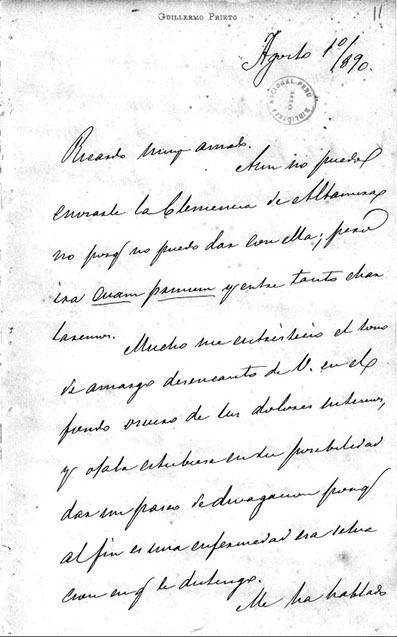 GUILLERMO PRIETO
11
Agosto 1º/890.
BIBLIOTECA NACIONAL - PERU
Ricardo muy amado.
Aun no puedo
enviarte la Clemencia de Altamirano
no porq no puedo dar con ella; pero
irá Quam primum y entre tanto char
laremos.
Mucho me entristeció el tono
de amargo desencanto de V. en el
fondo oscuro de los dolores internos,
y ojala estubiese en su posibilidad
dar un paseo de divagacion porq
al fin es una enfermedad esa
cion en q le
Me ha hablado